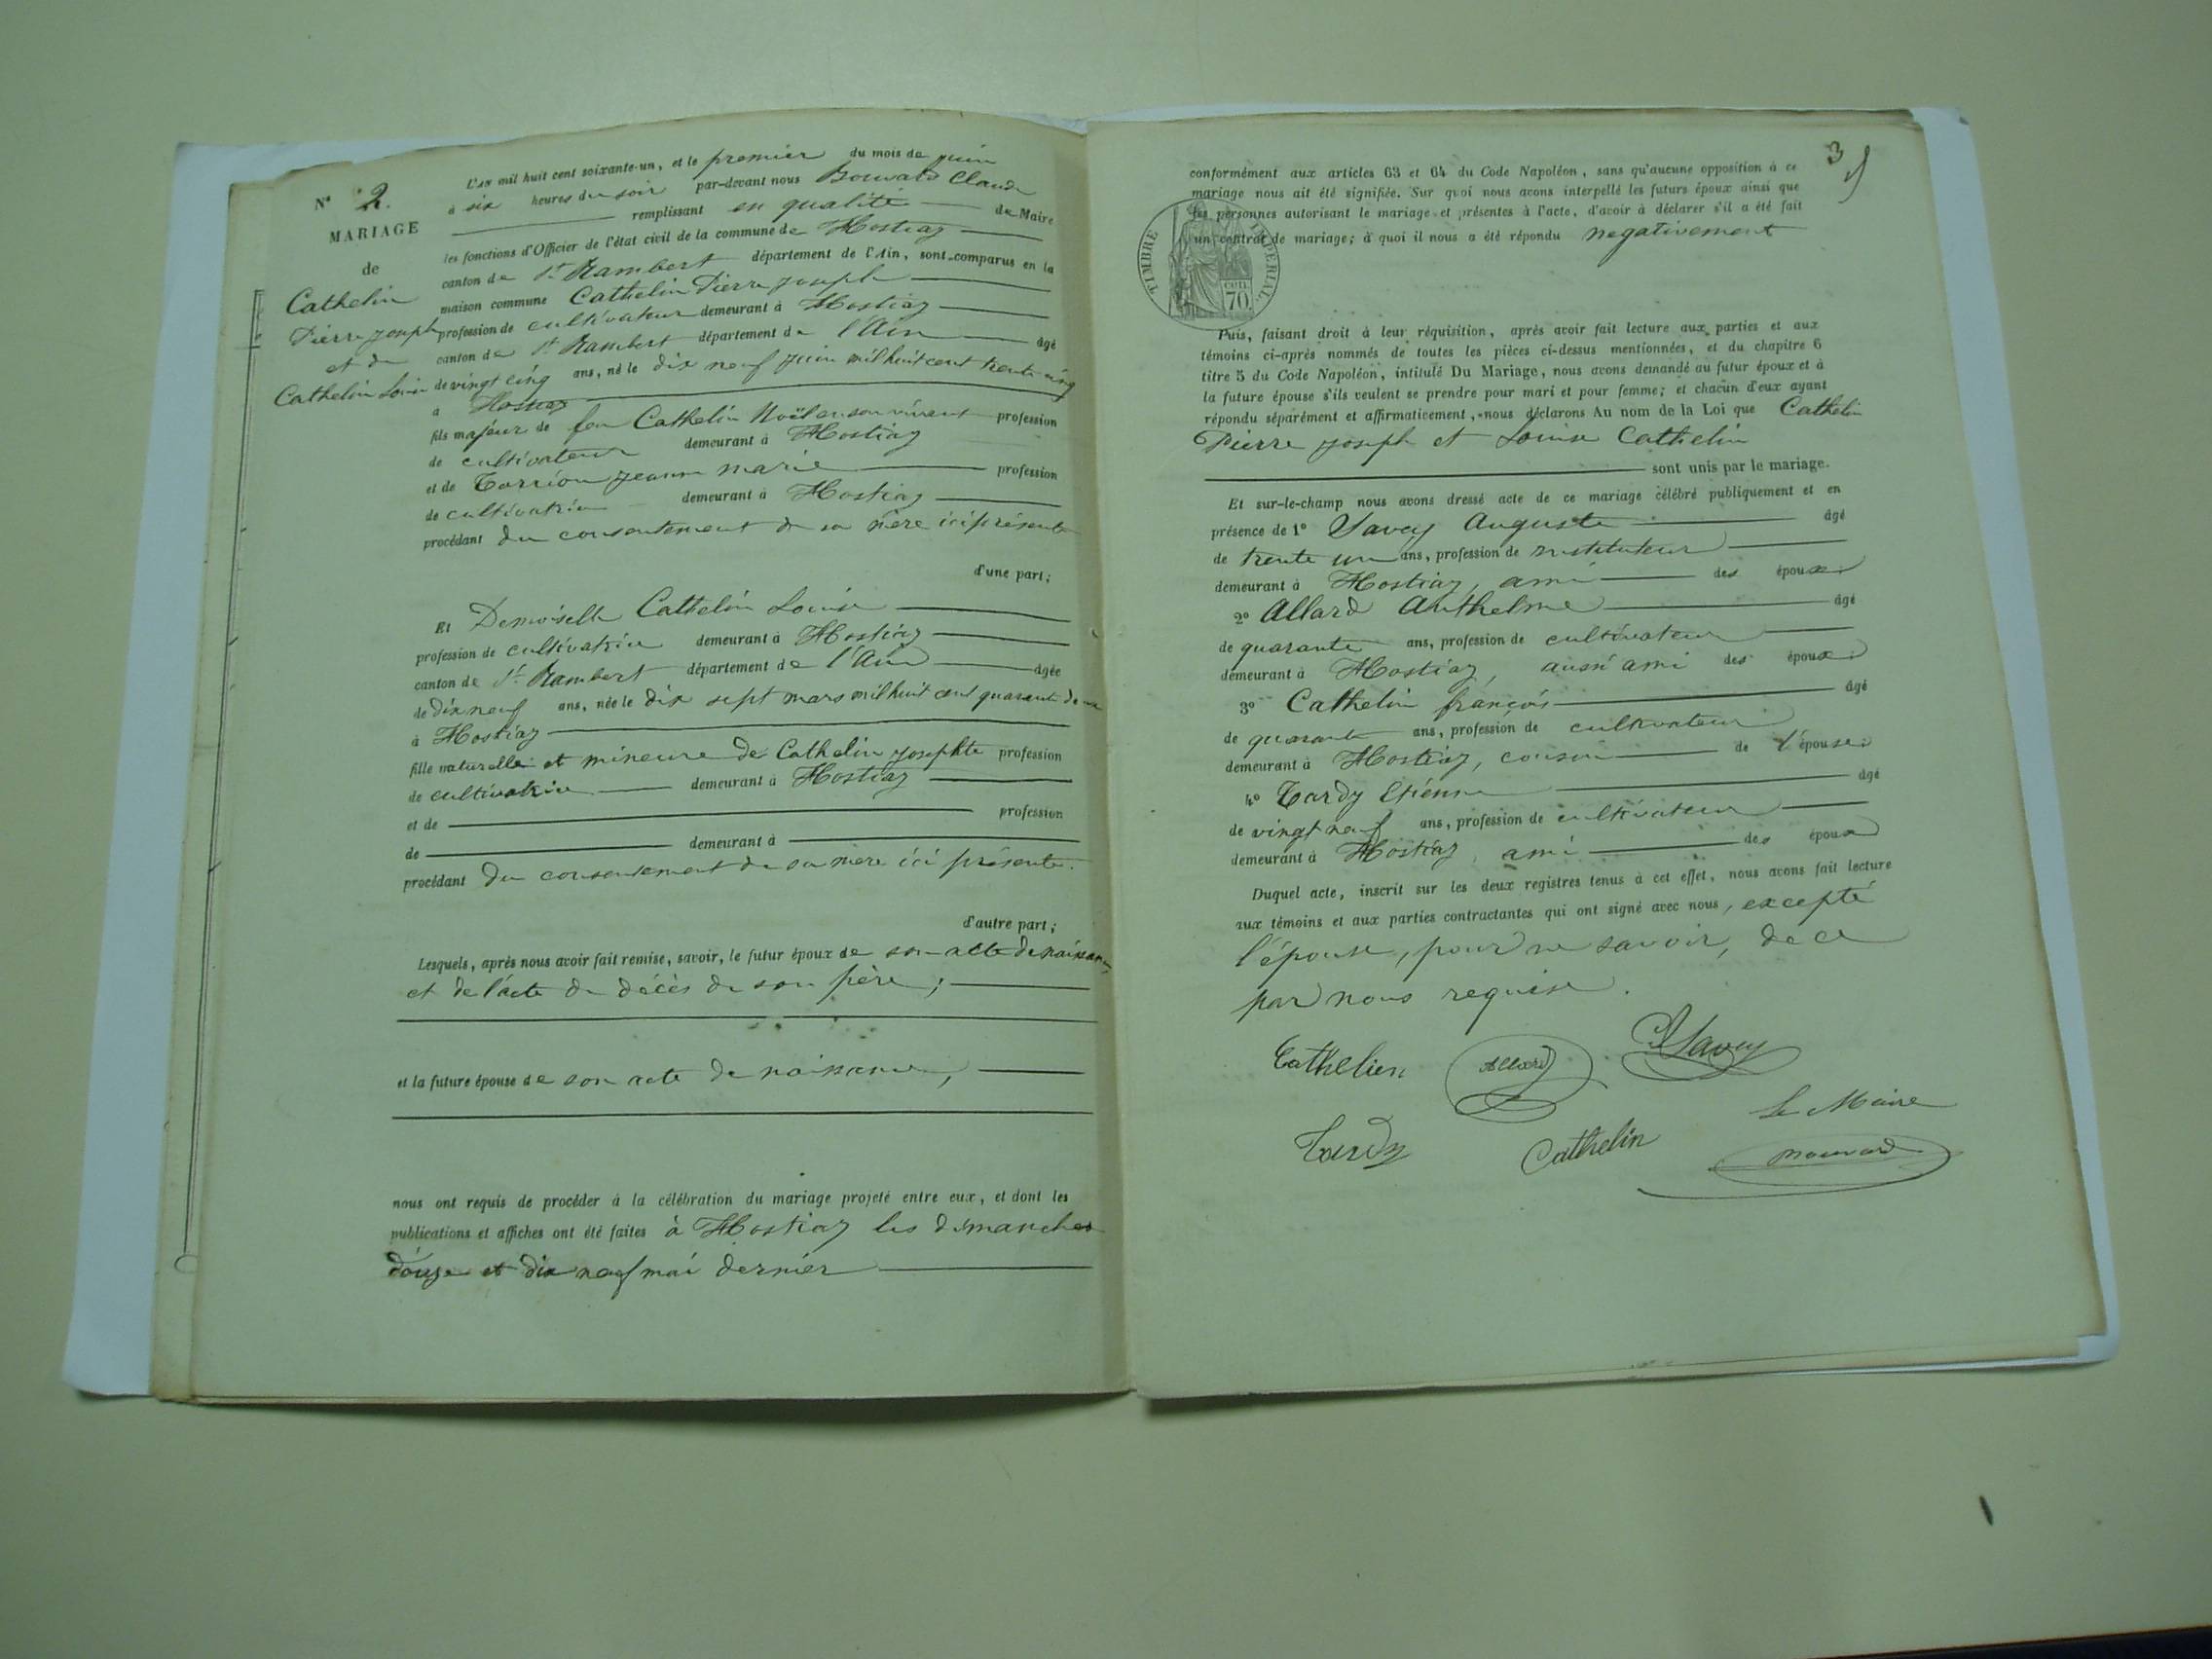 N° 2.
MARIAGE
de
Cathelin
Pierre joseph
et de
Cathelin Louise
L'an mil huit cent soixante-un, et le premier du mois de juin
à six heures du soir par-devant nous Bouvard Claude
remplissant en qualité de Maire
les fonctions d'Officier de l'état civil de la commune de Hostiaz
canton de St Rambert département de l'Ain, sont comparus en la
maison commune Cathelin Pierre joseph
profession de cultivateur demeurant à Hostiaz
canton de St Rambert département de l'Ain âgé
de vingt cinq ans, né le dix neuf juin mil huit cent trente cinq
à Hostiaz
fils majeur de feu Cathelin Noël en son vivant profession
de cultivateur demeurant à Hostiaz
et de Carrion jeanne marie profession
de cultivatrice demeurant à Hostiaz
procédant du consentement de sa mère ici présente
d'une part;
Et Demoiselle Cathelin Louise
profession de cultivatrice demeurant à Hostiaz
canton de St Rambert département de l'Ain âgée
de dix neuf ans, née le dix sept mars mil huit cent quarante deux
à Hostiaz
fille naturelle et mineure de Cathelin josephte profession
de cultivatrice demeurant à Hostiaz
et de profession
de demeurant à
procédant du consentement de sa mère ici présente.
d'autre part;
Lesquels, après nous avoir fait remise, savoir, le futur époux de son acte de naissance,
et de l'acte de décès de son père;
et la future épouse de son acte de naissance,
nous ont requis de procéder à la célébration du mariage projeté entre eux, et dont les
publications et affiches ont été faites à Hostiaz les dimanches
douze et dix neuf mai dernier
3
conformément aux articles 63 et 64 du Code Napoléon, sans qu'aucune opposition à ce
mariage nous ait été signifiée. Sur quoi nous avons interpellé les futurs époux ainsi que
les personnes autorisant le mariage et présentes à l'acte, d'avoir à déclarer s'il a été fait
un contrat de mariage; à quoi il nous a été répondu negativement
TIMBRE IMPERIAL
CEN.
70
Puis, faisant droit à leur réquisition, après avoir fait lecture aux parties et aux
témoins ci-après nommés de toutes les pièces ci-dessus mentionnées, et du chapitre 6
titre 5 du Code Napoléon, intitulé Du Mariage, nous avons demandé au futur époux et à
la future épouse s'ils veulent se prendre pour mari et pour femme; et chacun d'eux ayant
répondu séparément et affirmativement, nous déclarons Au nom de la Loi que Cathelin
Pierre joseph et Louise Cathelin
sont unis par le mariage.
Et sur-le-champ nous avons dressé acte de ce mariage célébré publiquement et en
présence de 1° Savey Auguste âgé
de trente un ans, profession de instituteur
demeurant à Hostiaz, ami des époux
2° Allard Anthelme âgé
de quarante ans, profession de cultivateur
demeurant à Hostiaz, aussi ami des époux
3° Cathelin françois âgé
de quarante ans, profession de cultivateur
demeurant à Hostiaz, cousin de l'épouse
4° Tardy Etienne âgé
de vingt neuf ans, profession de cultivateur
demeurant à Hostiaz, ami des époux
Duquel acte, inscrit sur les deux registres tenus à cet effet, nous avons fait lecture
aux témoins et aux parties contractantes qui ont signé avec nous, excepté
l'épouse, pour ne savoir, de ce
par nous requise.
Cathelin Allard Savey
Le Maire
Tardy Cathelin Bouvard